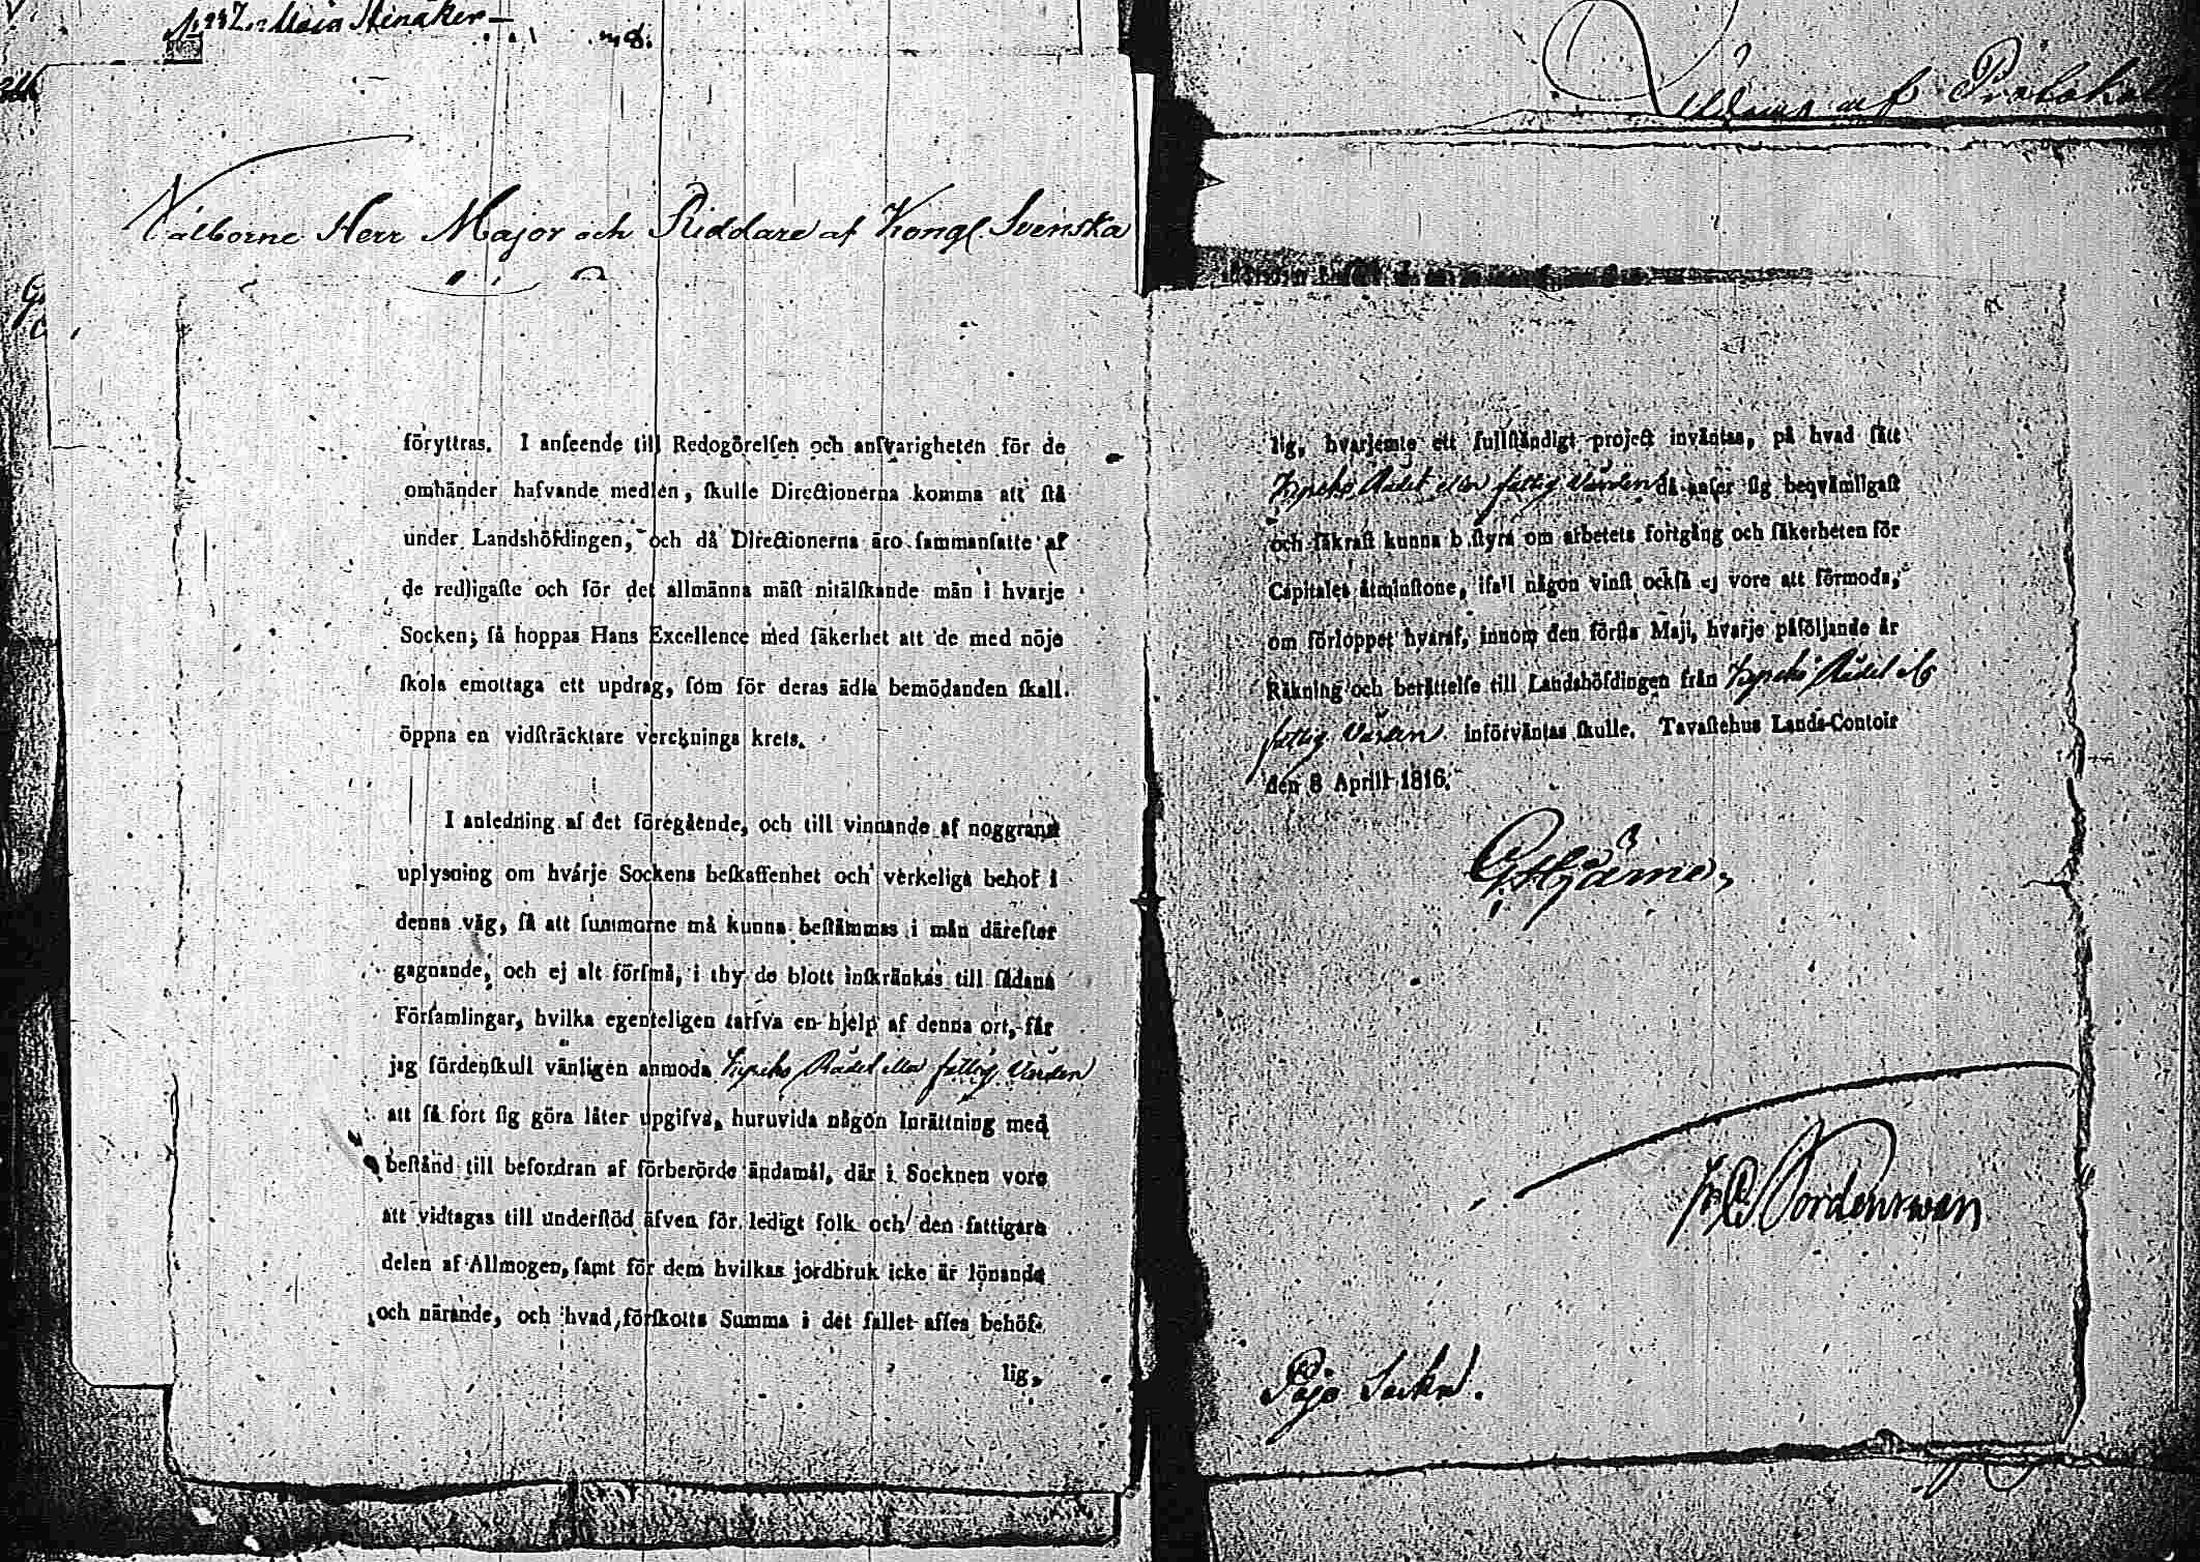 Välborne Herr Major och Riddare af Kongl. Svenska
föryttras. I anſeende till Redogörelſen och anſvarigheten för de
omhänder hafvande medlen, ſkulle Directionerna komma att ſtå
under Landshöfdingen, och då Directionerna äro ſammanſatte af
de redligaſte och för det allmänna mäſt nitälſkande män i hvarje
Socken; ſå hoppas Hans Excellence med ſäkerhet att de med nöje
ſkola emottaga ett updrag, ſom för deras ädla bemödanden ſkall
öppna en vidſträcktare vercknings krets.
I anledning af det föregående, och till vinnande af noggrann
uplysning om hvarje Sockens beſkaffenhet och verkeliga behof i
denna väg, ſå att ſummorne må kunna beſtämmas i mån därefter
gagnande, och ej alt förſmå, i thy de blott inſkränkas till ſådana
Förſamlingar, hvilka egenteligen tarfva en hjelp af denna ort, får
jag fördenſkull vänligen anmoda Kyrcko Rådet eller fattig Vården
att ſå fort ſig göra låter upgifva, huruvida någon Inrättning med
beſtånd till befordran af förberörde ändamål, där i Socknen vore
att vidtagas till underſtöd äfven för ledigt folk och den fattigare
delen af Allmogen, ſamt för dem hvilkas jordbruk icke är lönande
och närande, och hvad förſkotts Summa i det fallet anſes behöf-
lig,
Vidimus af Protokoll
lig, hvarjemte ett fullſtändigt project inväntas, på hvad ſätt
Kyrcko Rådet eller fattig Vården då anſer ſig beqvämligaſt
och ſäkraſt kunna beſtyra om arbetets fortgång och ſäkerheten för
Capitalet åtminſtone, ifall någon vinſt ockſå ej vore att förmoda,
om förloppet hvaraf, innom den förſta Maji, hvarje påföljande år
Räkning och berättelſe till Landshöfdingen från Kyrcko Rådet el.
fattig Vården införväntas ſkulle. Tavaſtehus Lands-Contoir
den 8 Aprill 1816.
G. Hjärne,
Nordenswan
Pojo Sockn.